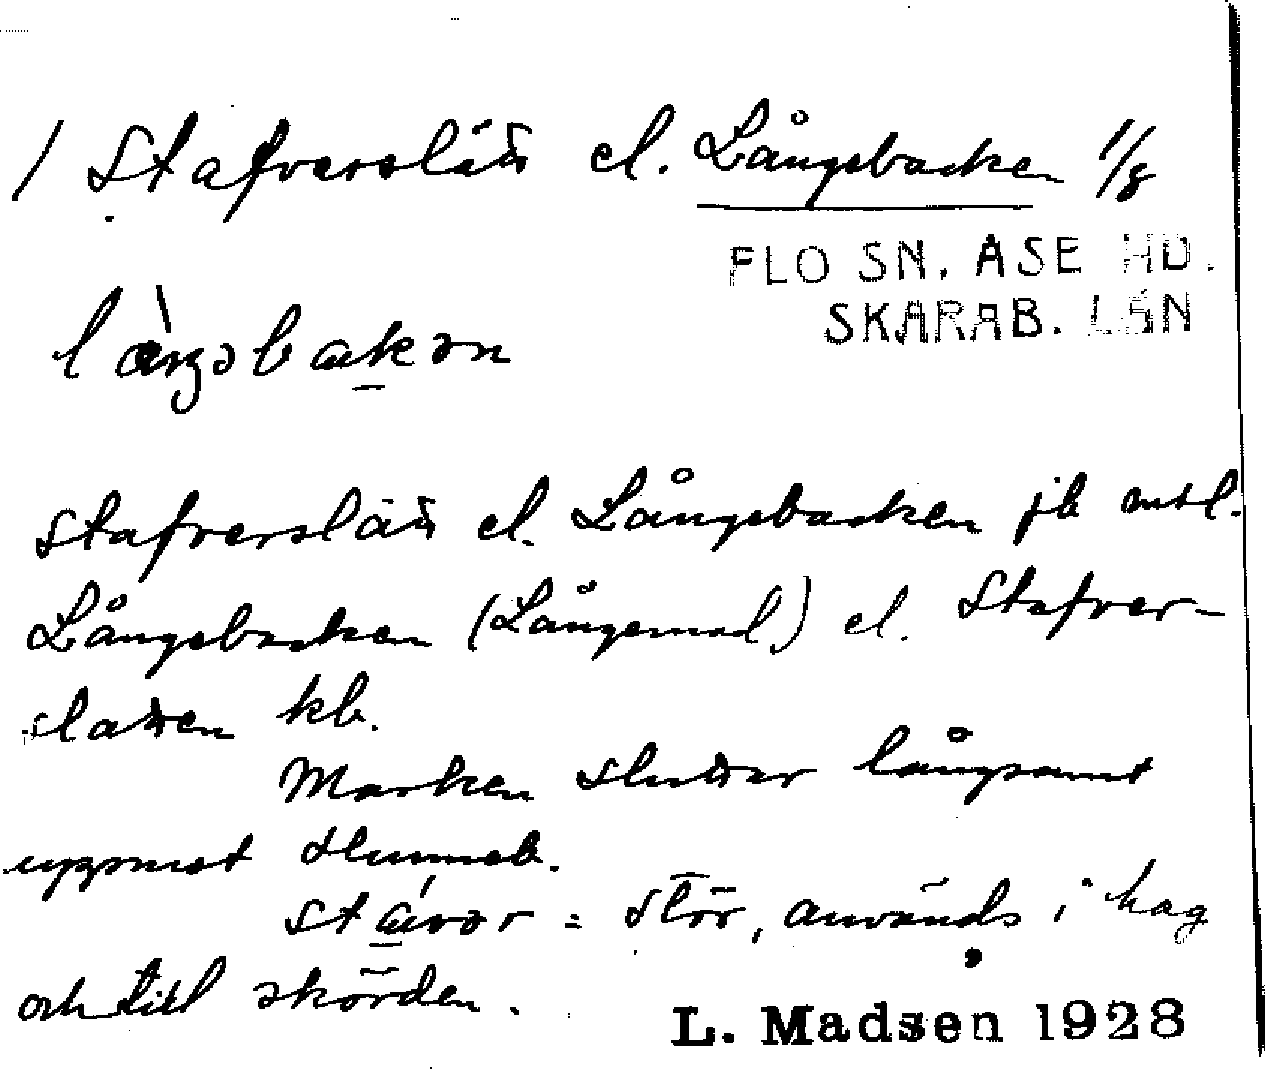 / Stafverslätt el. Långebacken 1/8
FLO SN. ÅSE HD.
SKARAB. LÄN
Stafverslätt el. Långebacken jb mtl.
Långebacken (Långemad) el. Stafver-
slatten kb.
Marken sluttar långsamt
uppmot Hunneb.
= stör, används i hag
och till skörden.
L. Madsen 1928